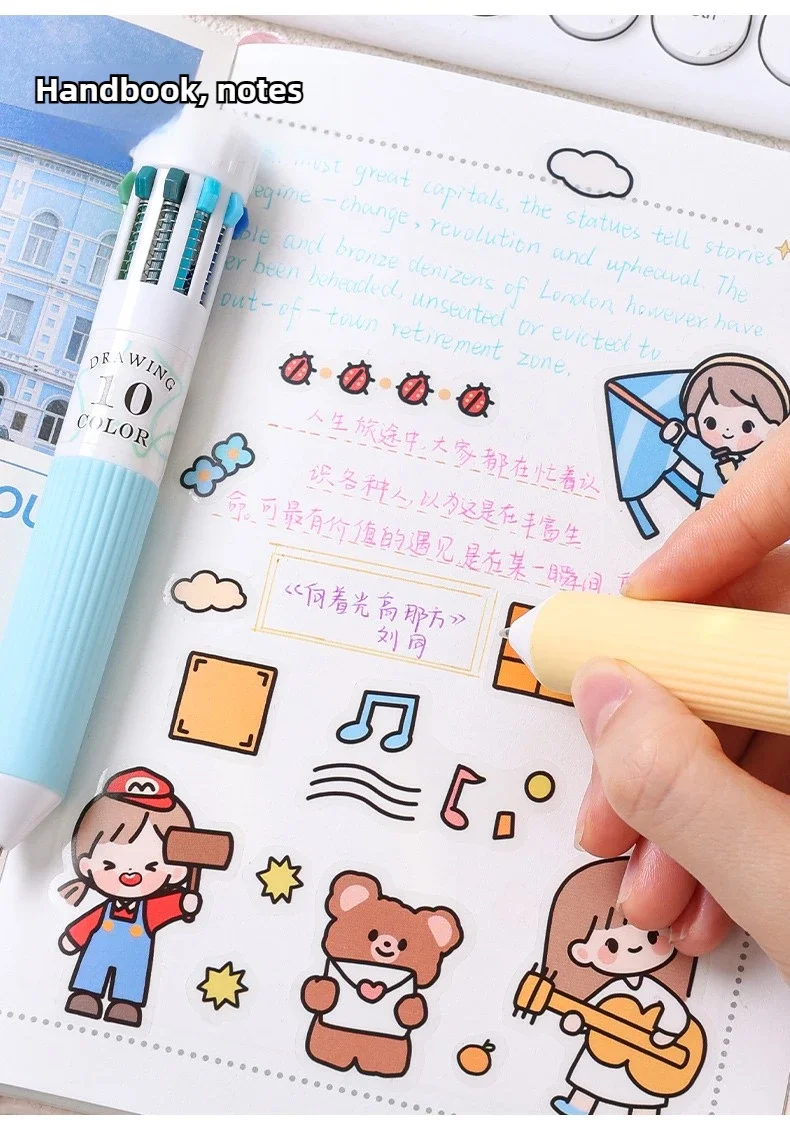 Handbook, notes
most great capitals, the statues tell stories
regime-change, revolution and upheaval. The
and bronze denizens of London however have
been beheaded, unseated or evicted to
out-of-town retirement zone.
DRAWING
10
COLOR
人生旅途中,大家都在忙着认
识各种人,以为这是在丰富生
命。可最有价值的遇见,是在某一瞬间,
《向着光亮那方》
刘同
M